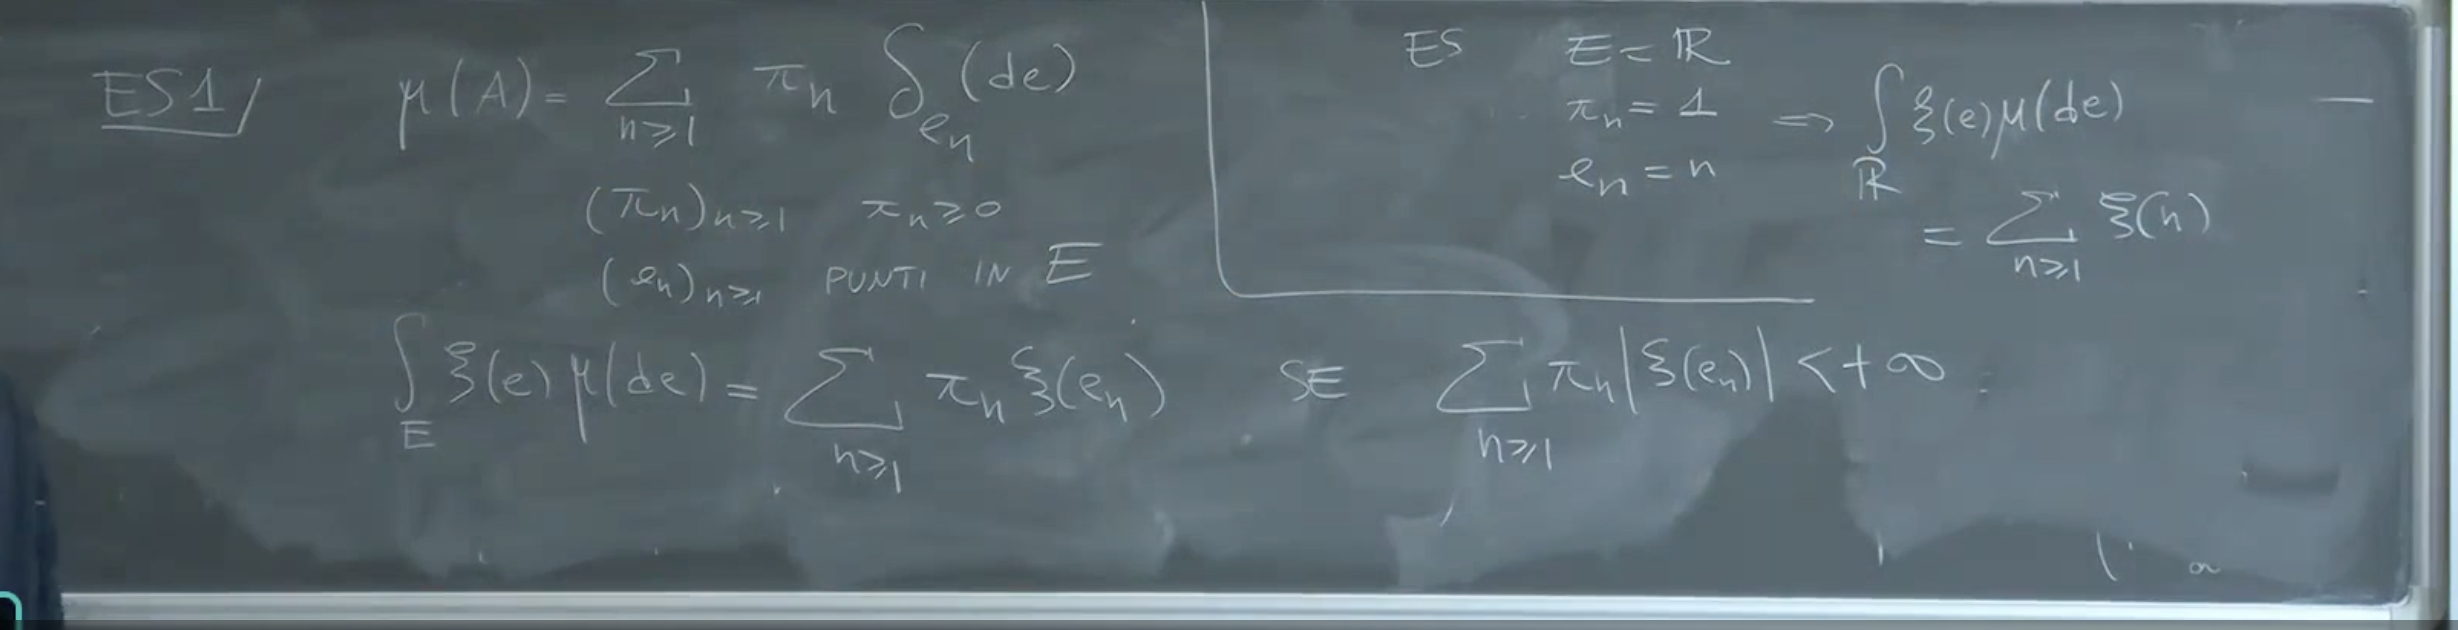 ES1/ μ(A) = ∑_{n≥1} π_n δ_{e_n}(de)
(π_n)_{n≥1} π_n ≥ 0
(e_n)_{n≥1} PUNTI IN E
∫_E ξ(e) μ(de) = ∑_{n≥1} π_n ξ(e_n) SE ∑_{n≥1} π_n |ξ(e_n)| < +∞
ES E = ℝ
π_n = 1 ⇒ ∫_ℝ ξ(e) μ(de)
e_n = n
= ∑_{n≥1} ξ(n)